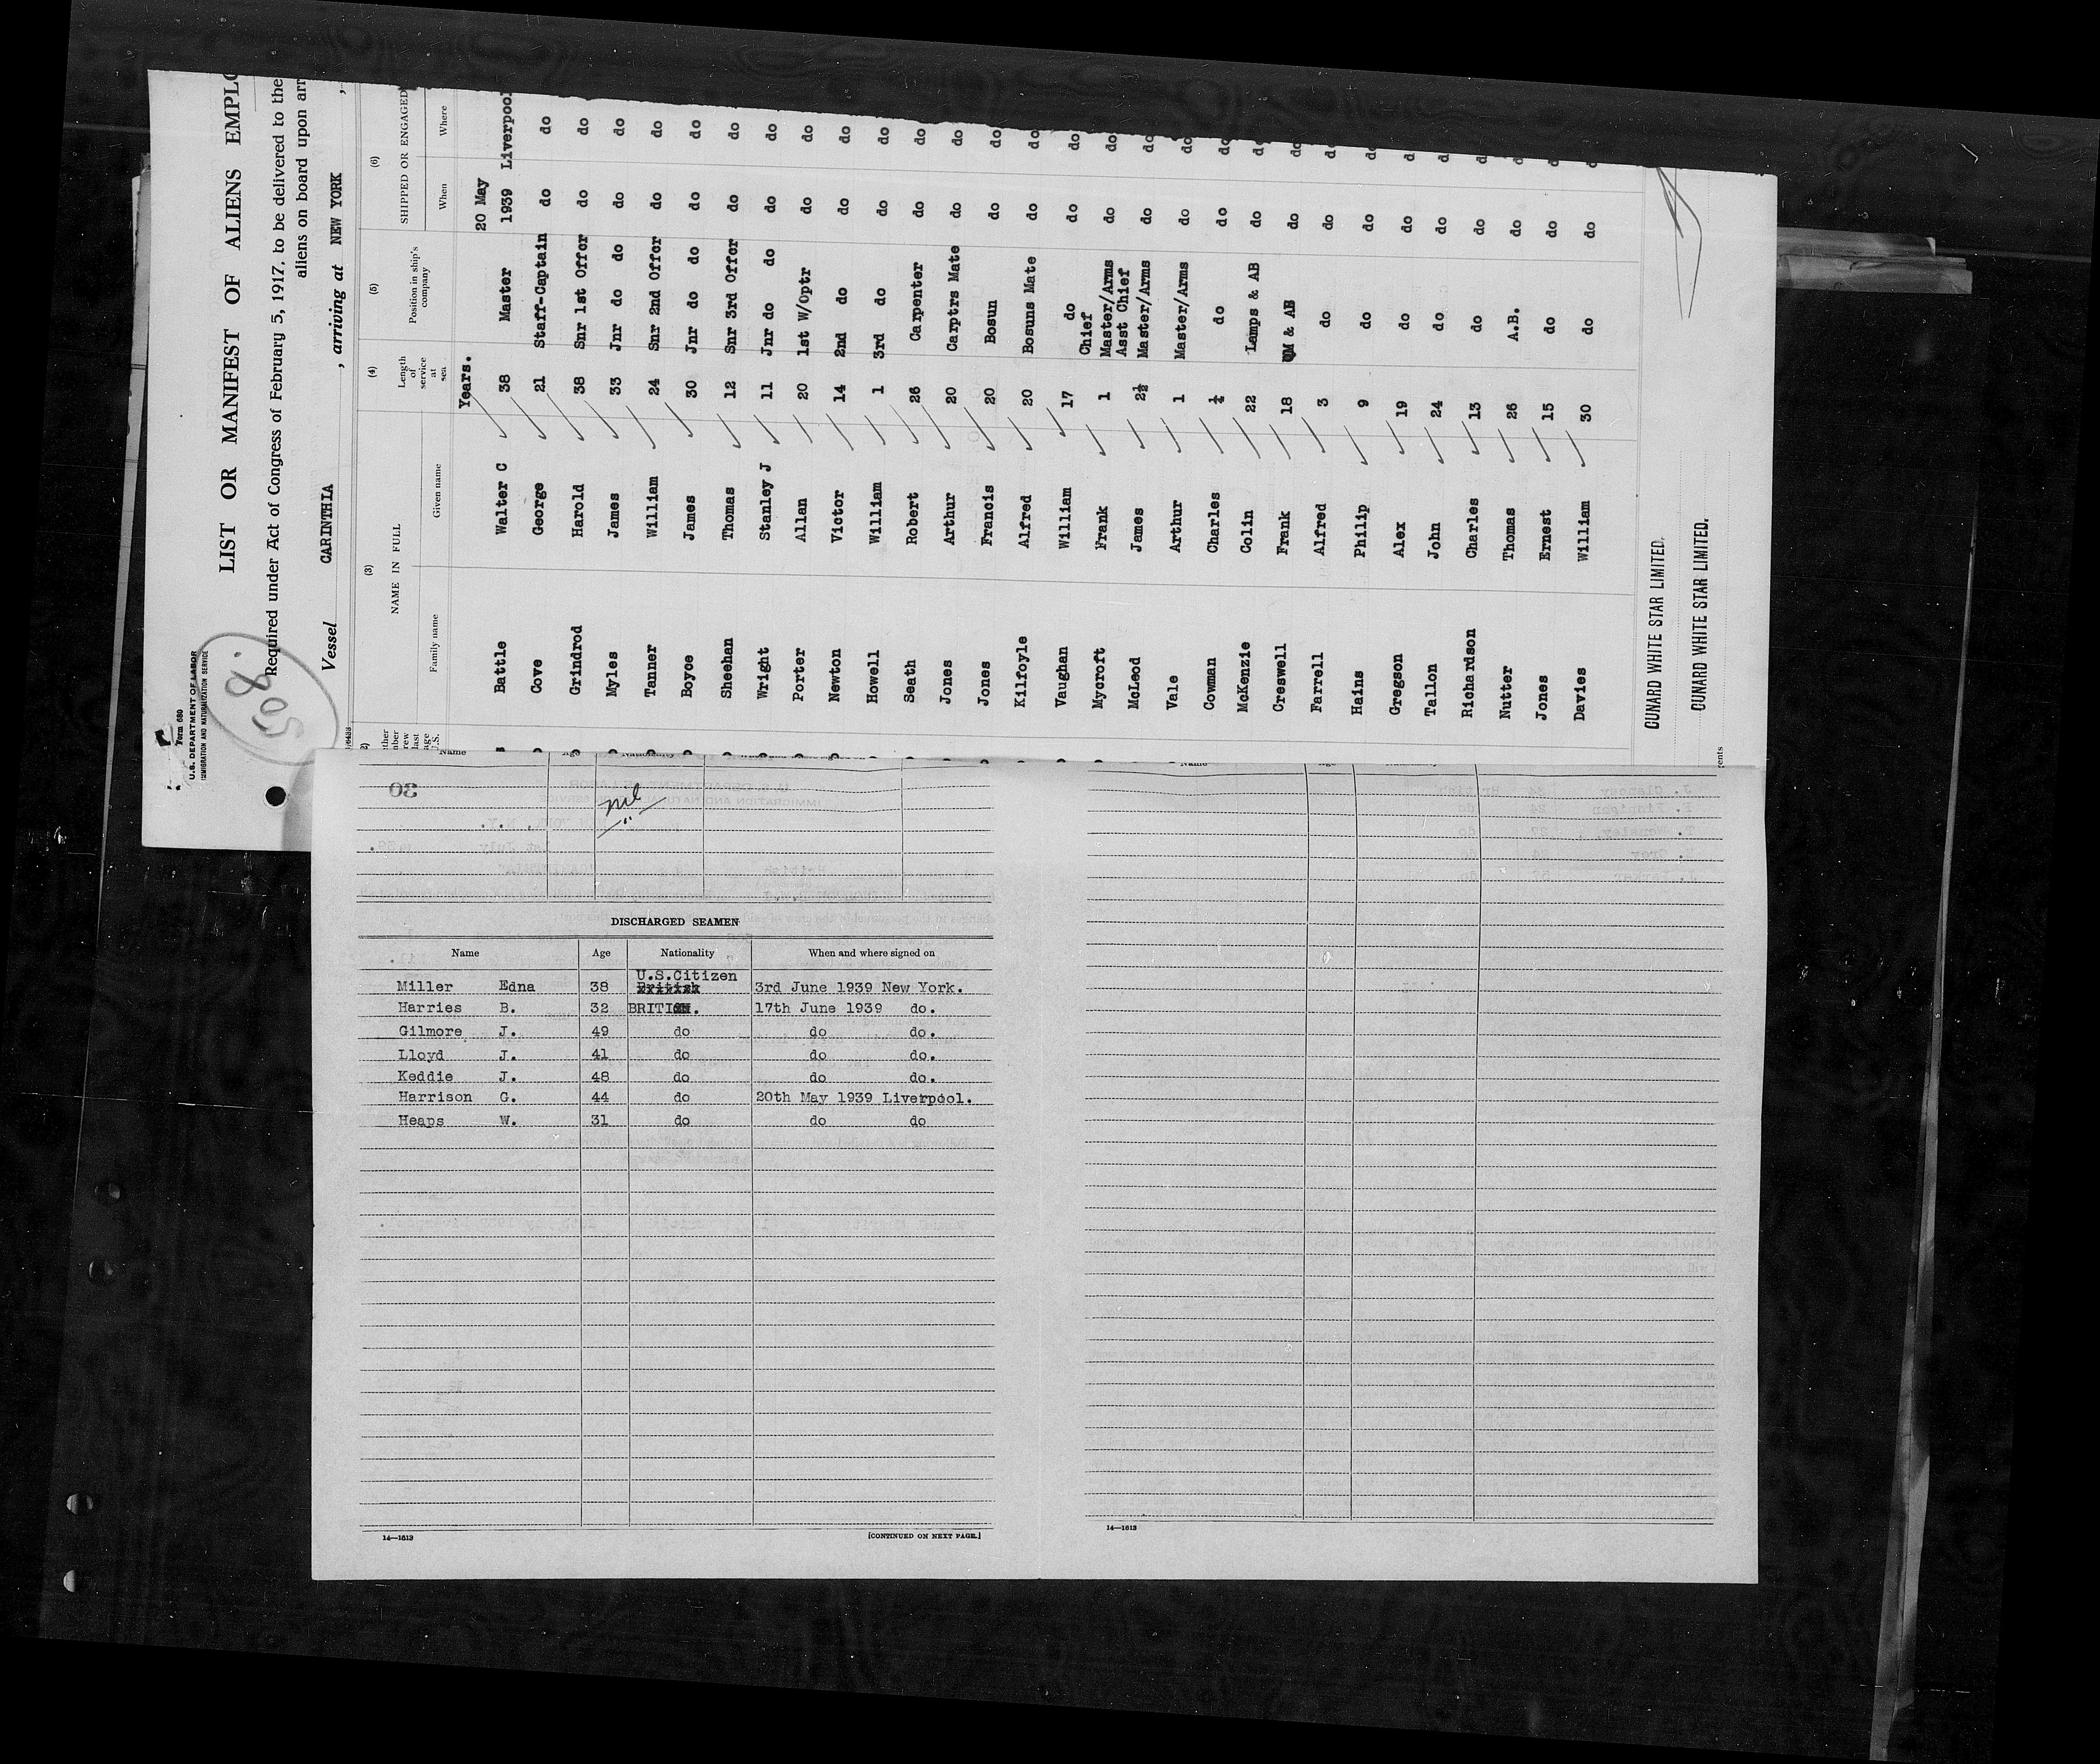 Form 680
U.S. DEPARTMENT OF LABOR
IMMIGRATION AND NATURALIZATION SERVICE
508.
LIST OR MANIFEST OF ALIENS
Required under Act of Congress of February 5, 1917, to be delivered to the
aliens on board upon
Vessel CARINTHIA , arriving at NEW YORK ,
(3) (4) (5) (6)
NAME IN FULL Length of service at sea Position in ship's company SHIPPED OR ENGAGED
Family name Given name When Where
Years. 20 May
Battle Walter C 38 Master 1939 Liverpool
Cove George 21 Staff-Captain do do
Grindrod Harold 38 Snr 1st Offcr do do
Myles James 33 Jnr do do do do
Tanner William 24 Snr 2nd Offcr do do
Boyce James 30 Jnr do do do do
Sheehan Thomas 12 Snr 3rd Offcr do do
Wright Stanley J 11 Jnr do do do do
Porter Allan 20 1st W/Optr do do
Newton Victor 14 2nd do do do
Howell William 1 3rd do do do
Seath Robert 26 Carpenter do do
Jones Arthur 20 Carptrs Mate do do
Jones Francis 20 Bosun do do
Kilfoyle Alfred 20 Bosuns Mate do do
Vaughan William 17 do do do
Mycroft Frank 1 Chief Master/Arms do do
McLeod James 2½ Asst Chief Master/Arms do do
Vale Arthur 1 Master/Arms do do
Cowman Charles do do do
McKenzie Colin 22 Lamps & AB do do
Creswell Frank 18 QM & AB do do
Farrell Alfred 3 do do
Hains Philip 9 do do
Gregson Alex 19 do do
Tallon John 24 do do
Richardson Charles 13 do do
Nutter Thomas 26 A.B. do
Jones Ernest 15 do do
Davies William 30 do do
CUNARD WHITE STAR LIMITED.
CUNARD WHITE STAR LIMITED.
nil
DISCHARGED SEAMEN
Name Age Nationality When and where signed on
U.S.Citizen
Miller Edna 38 British 3rd June 1939 New York.
Harries B. 32 BRITISH. 17th June 1939 do.
Gilmore J. 49 do do do.
Lloyd J. 41 do do do.
Keddie J. 48 do do do.
Harrison G. 44 do 20th May 1939 Liverpool.
Heaps W. 31 do do do
14—1613 [CONTINUED ON NEXT PAGE.]
14—1613